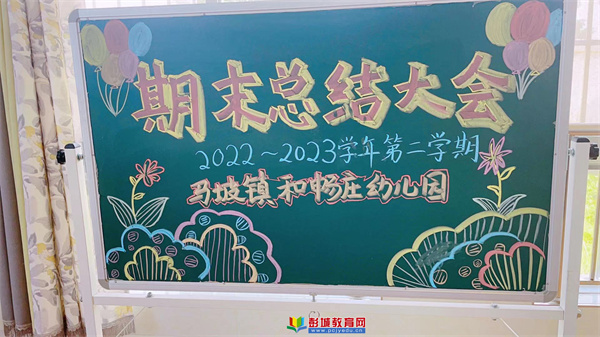 期末总结大会
2022~2023学年第二学期
马坡镇和畅庄幼儿园
彭城教育网
www.pcjyedu.cn